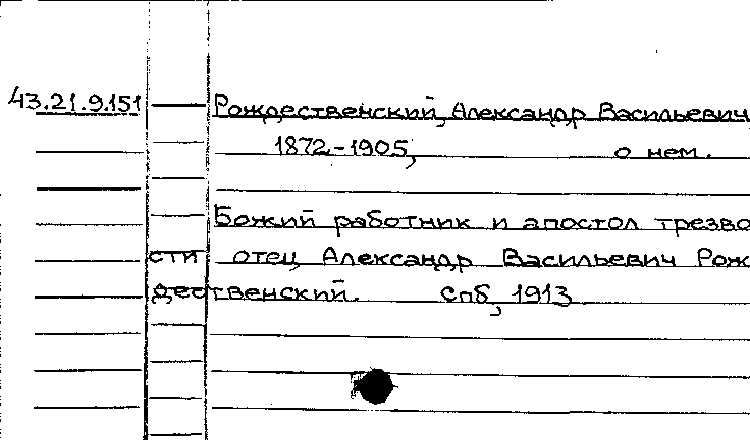 43.21.9.151 — Рождественский, Александр Васильевич
1872-1905, о нем.
Божий работник и апостол трезво
сти отец Александр Васильевич Рож
дественский. Спб, 1913